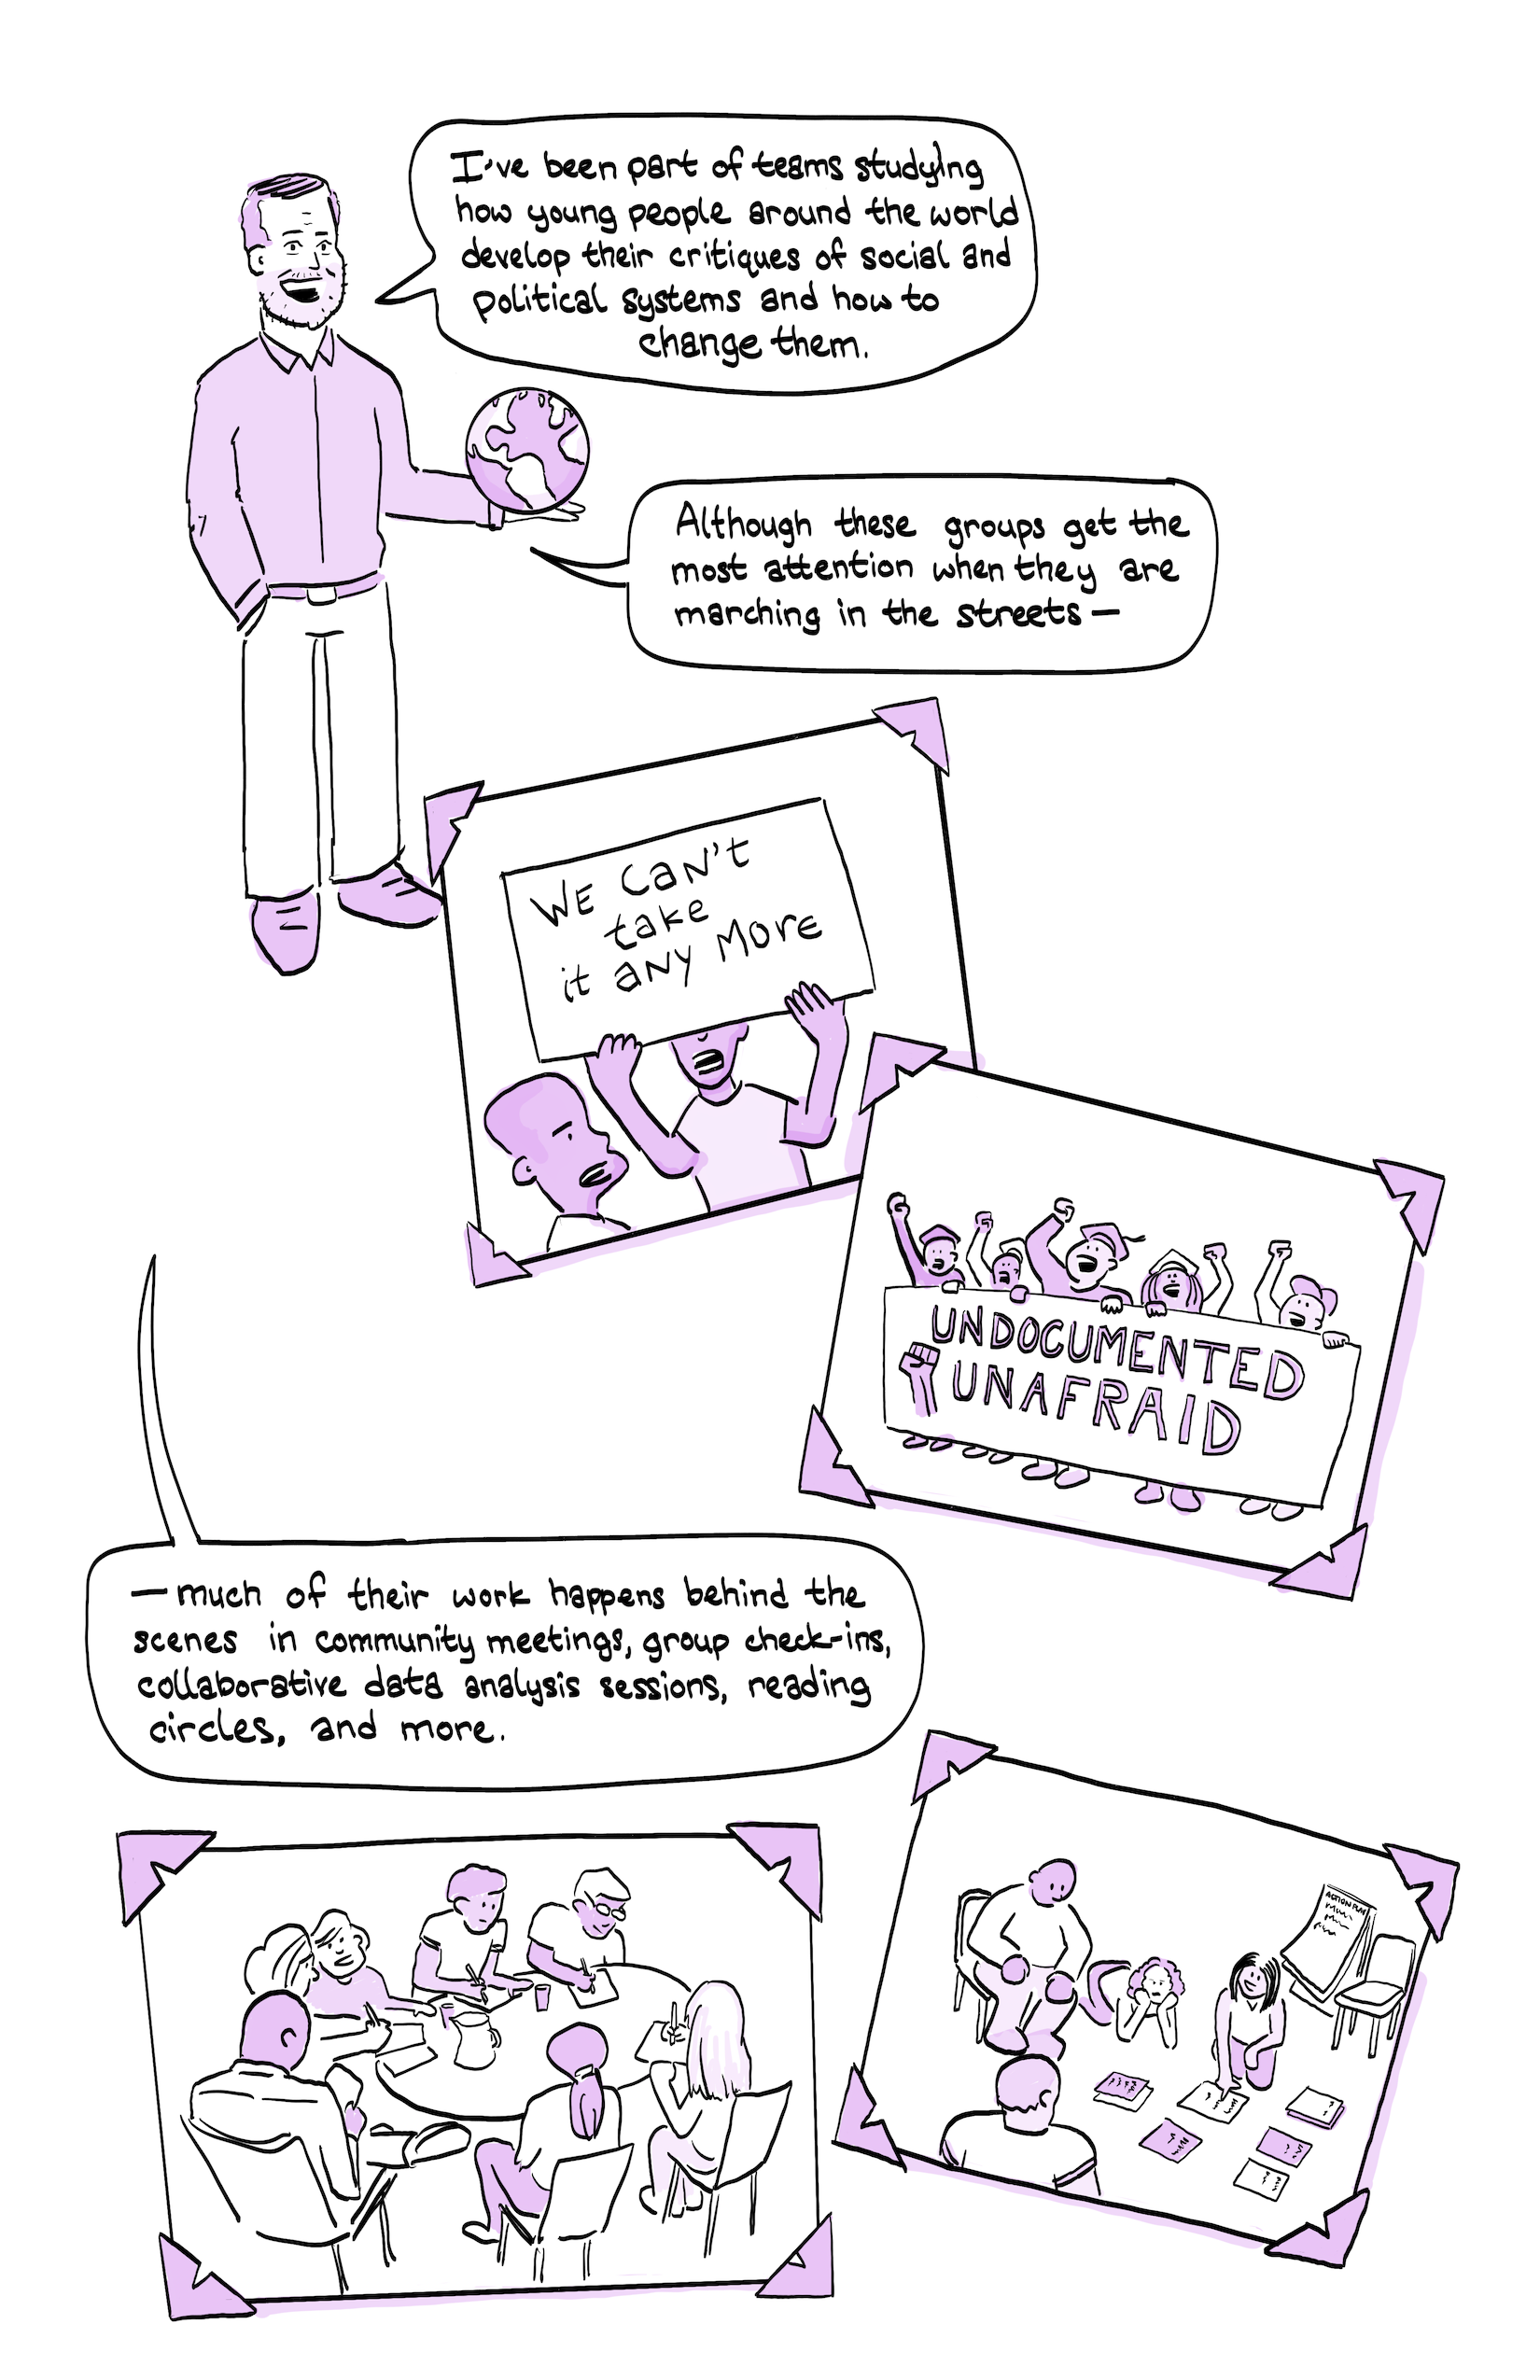 I've been part of teams studying
how young people around the world
develop their critiques of social and
political systems and how to
change them.
Although these groups get the
most attention when they are
marching in the streets—
WE CAN'T
take
it ANY MORE
UNDOCUMENTED
UNAFRAID
—much of their work happens behind the
scenes in community meetings, group check-ins,
collaborative data analysis sessions, reading
circles, and more.
ACTION PLAN